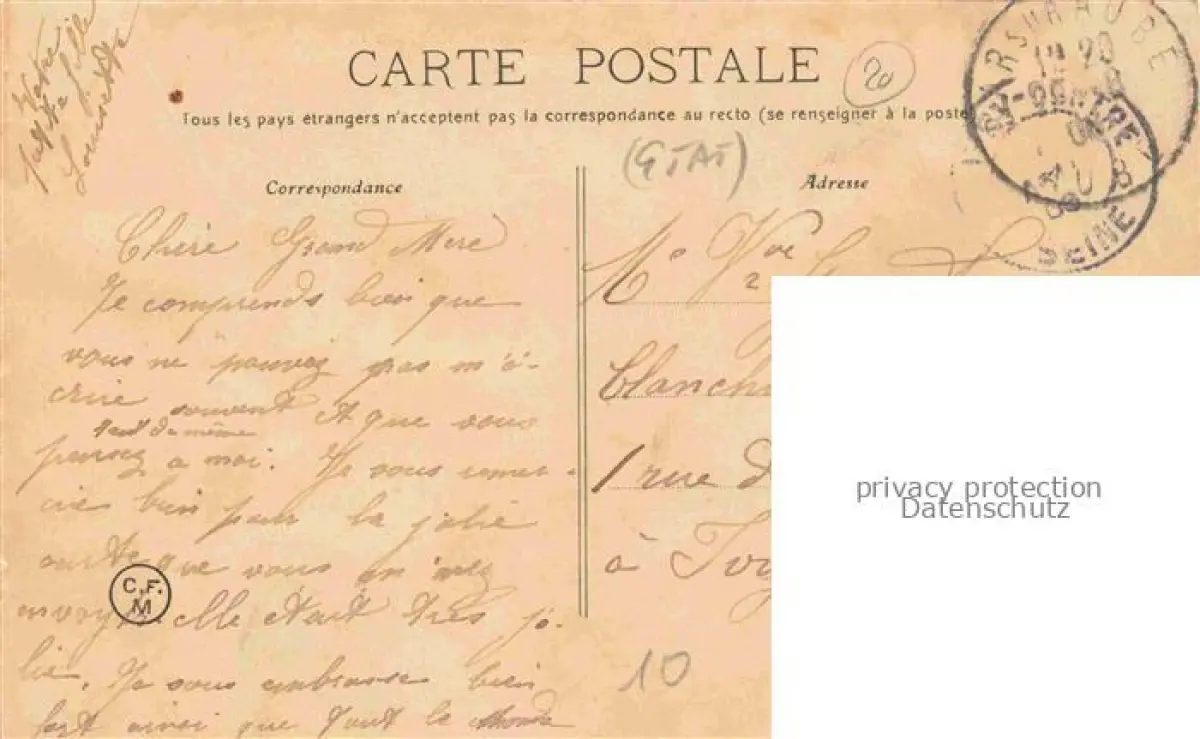 Votre
petite fille
Louisette
CARTE POSTALE
20
Tous les pays étrangers n'acceptent pas la correspondance au recto (se renseigner à la poste
(ETAT)
Correspondance
Chère Grand Mere
Je comprends bien que
vous ne pouvez pas m'é-
crire souvent et que vous
tout de même
pensez a moi. Je vous remer-
cie bien pour la jolie
carte que vous m'avez
envoyé elle était très jo-
lie. Je vous embrasse bien
fort ainsi que tout le monde
C.F.
M
Adresse
Me Vve
Blanch
1 rue d
à Ivry
10
BAR SUR AUBE
IVRY-CENTRE
SEINE
privacy protection
Datenschutz